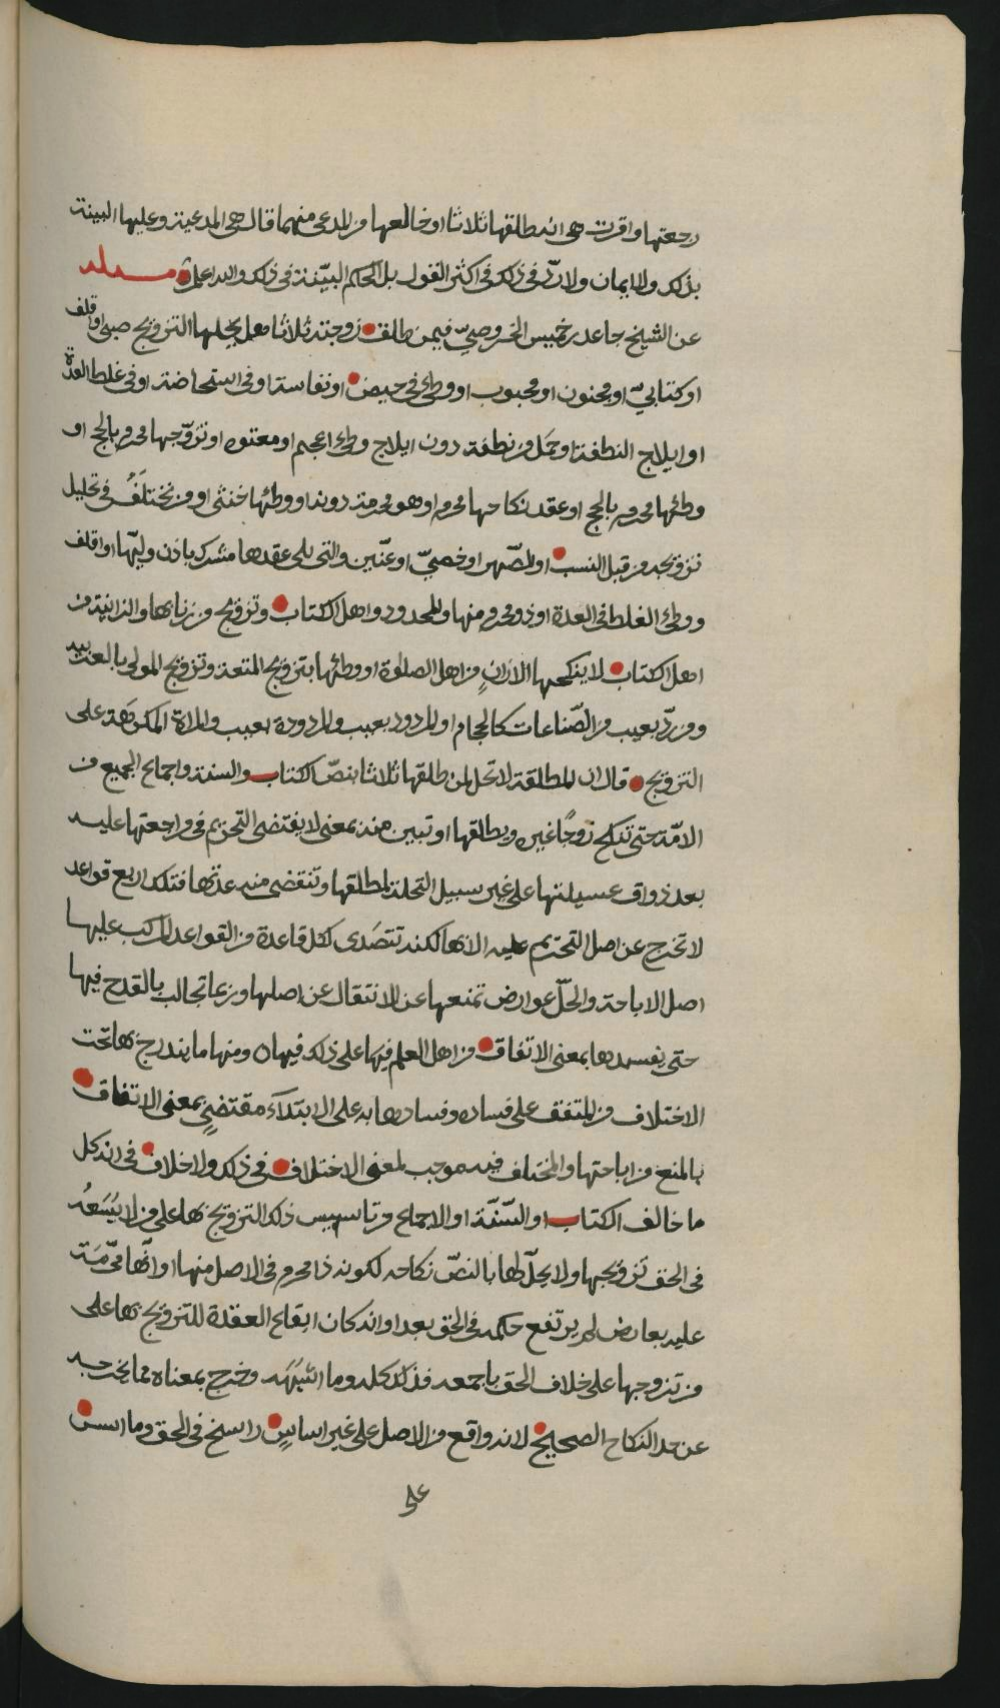 رجعتها واقرت هي انه طلقها ثلاثا او خالعها من المدعي منهما قال هي المدعية وعليها البينة
بذلك ولا ايمان ولا رد في ذلك في اكثر القول بل الحكم البينة في ذلك والله اعلم مسئلة
عن الشيخ جاعد بن خميس الخروصيّ فيمن طلق زوجته ثلاثا هل يحلها التزويج صبي او اقلف
او كتابيّ او مجنون او مجبوب او وطئ في حيض او نفاسة او في استحاضة او في غلط العدة
او ايلاج النطفة او حَمَل من نطفة دون ايلاج وطئ اعجم او معتوه او تزوّجها محرم بالحج او
وطئها محرم بالحج او عقد نكاحها محرم او هو محرمة دونه او وطئها خنثى او من يختلَفُ في تحليل
تزويجه من قبل النسب او الصّهر او خصيّ او عنّين والتي يلي عقدها مشرك باذن وليّها او اقلف
ووطئ الغلط في العدة او ذو محرم منها والمحدود واهل الكتاب وتزويج من زنا بها والزانية من
اهل الكتاب لا ينكحها الا زانٍ من اهل الصلوة او وطئها بتزويج المتعة وتزويج المولى بالعبيد
ومن ردّ بعيب من الصّناعات كالحجام او المردود بعيب والمردودة بعيب والمراة المكرهة على
التزويج قال ان المطلقة لا تحل لمن طلقها ثلاثا بنصّ الكتاب والسنة واجماع الجميع من
الامّة حتى تنكح زوجًا غيره ويطلقها او تبين منه بمعنى لا يقتضي التحريم في مراجعتها عليه
بعد ذواق عسيلتها على غير سبيل التحلة لمطلقها وتنقضي منه عدتها فتلك اربع قواعد
لا تخرج عن اصل التحريم عليه الا بها لكنه تتصَدى لكل قاعدة من القواعد المركب عليها
اصل الاباحة والحلّ عوارض تمنعها عن الانتقال عن اصلها وربما تجالب بالقدح فيها
حتى يفسدها بمعنى الاتفاق من اهل العلم فيها على ذلك فيهان ومنها ما يندرج بها تحت
الاختلاف من المتفق على فساده وفسادها به على الابتداء مقتضٍ بمعنى الاتفاق
بالمنع من اباحتها والمختلف فيه موجب لمعنى الاختلاف في ذلك ولا خلاف في انه كل
ما خالف الكتاب او السّنّة او الاجماع من تاسيس ذلك التزويج بها على من لا يَسَعُه
في الحق تزويجها ولا يحلّ لها بالنصّ نكاحه لكونه ذا محرم في الاصل منها او انّها محرّمَة
عليه بعارض لم يرتفع حكمه في الحق بعد او انه كان ايقاع العقدة للتزويج بها على
من تزوجها على خلاف الحق باجمعه فذلك كله وما اشبَهَه وخرج بمعناه مما يخرجه
عن حد النكاح الصحيح لانه واقع من الاصل على غير اساسٍ راسخ في الحق وما اسس
على